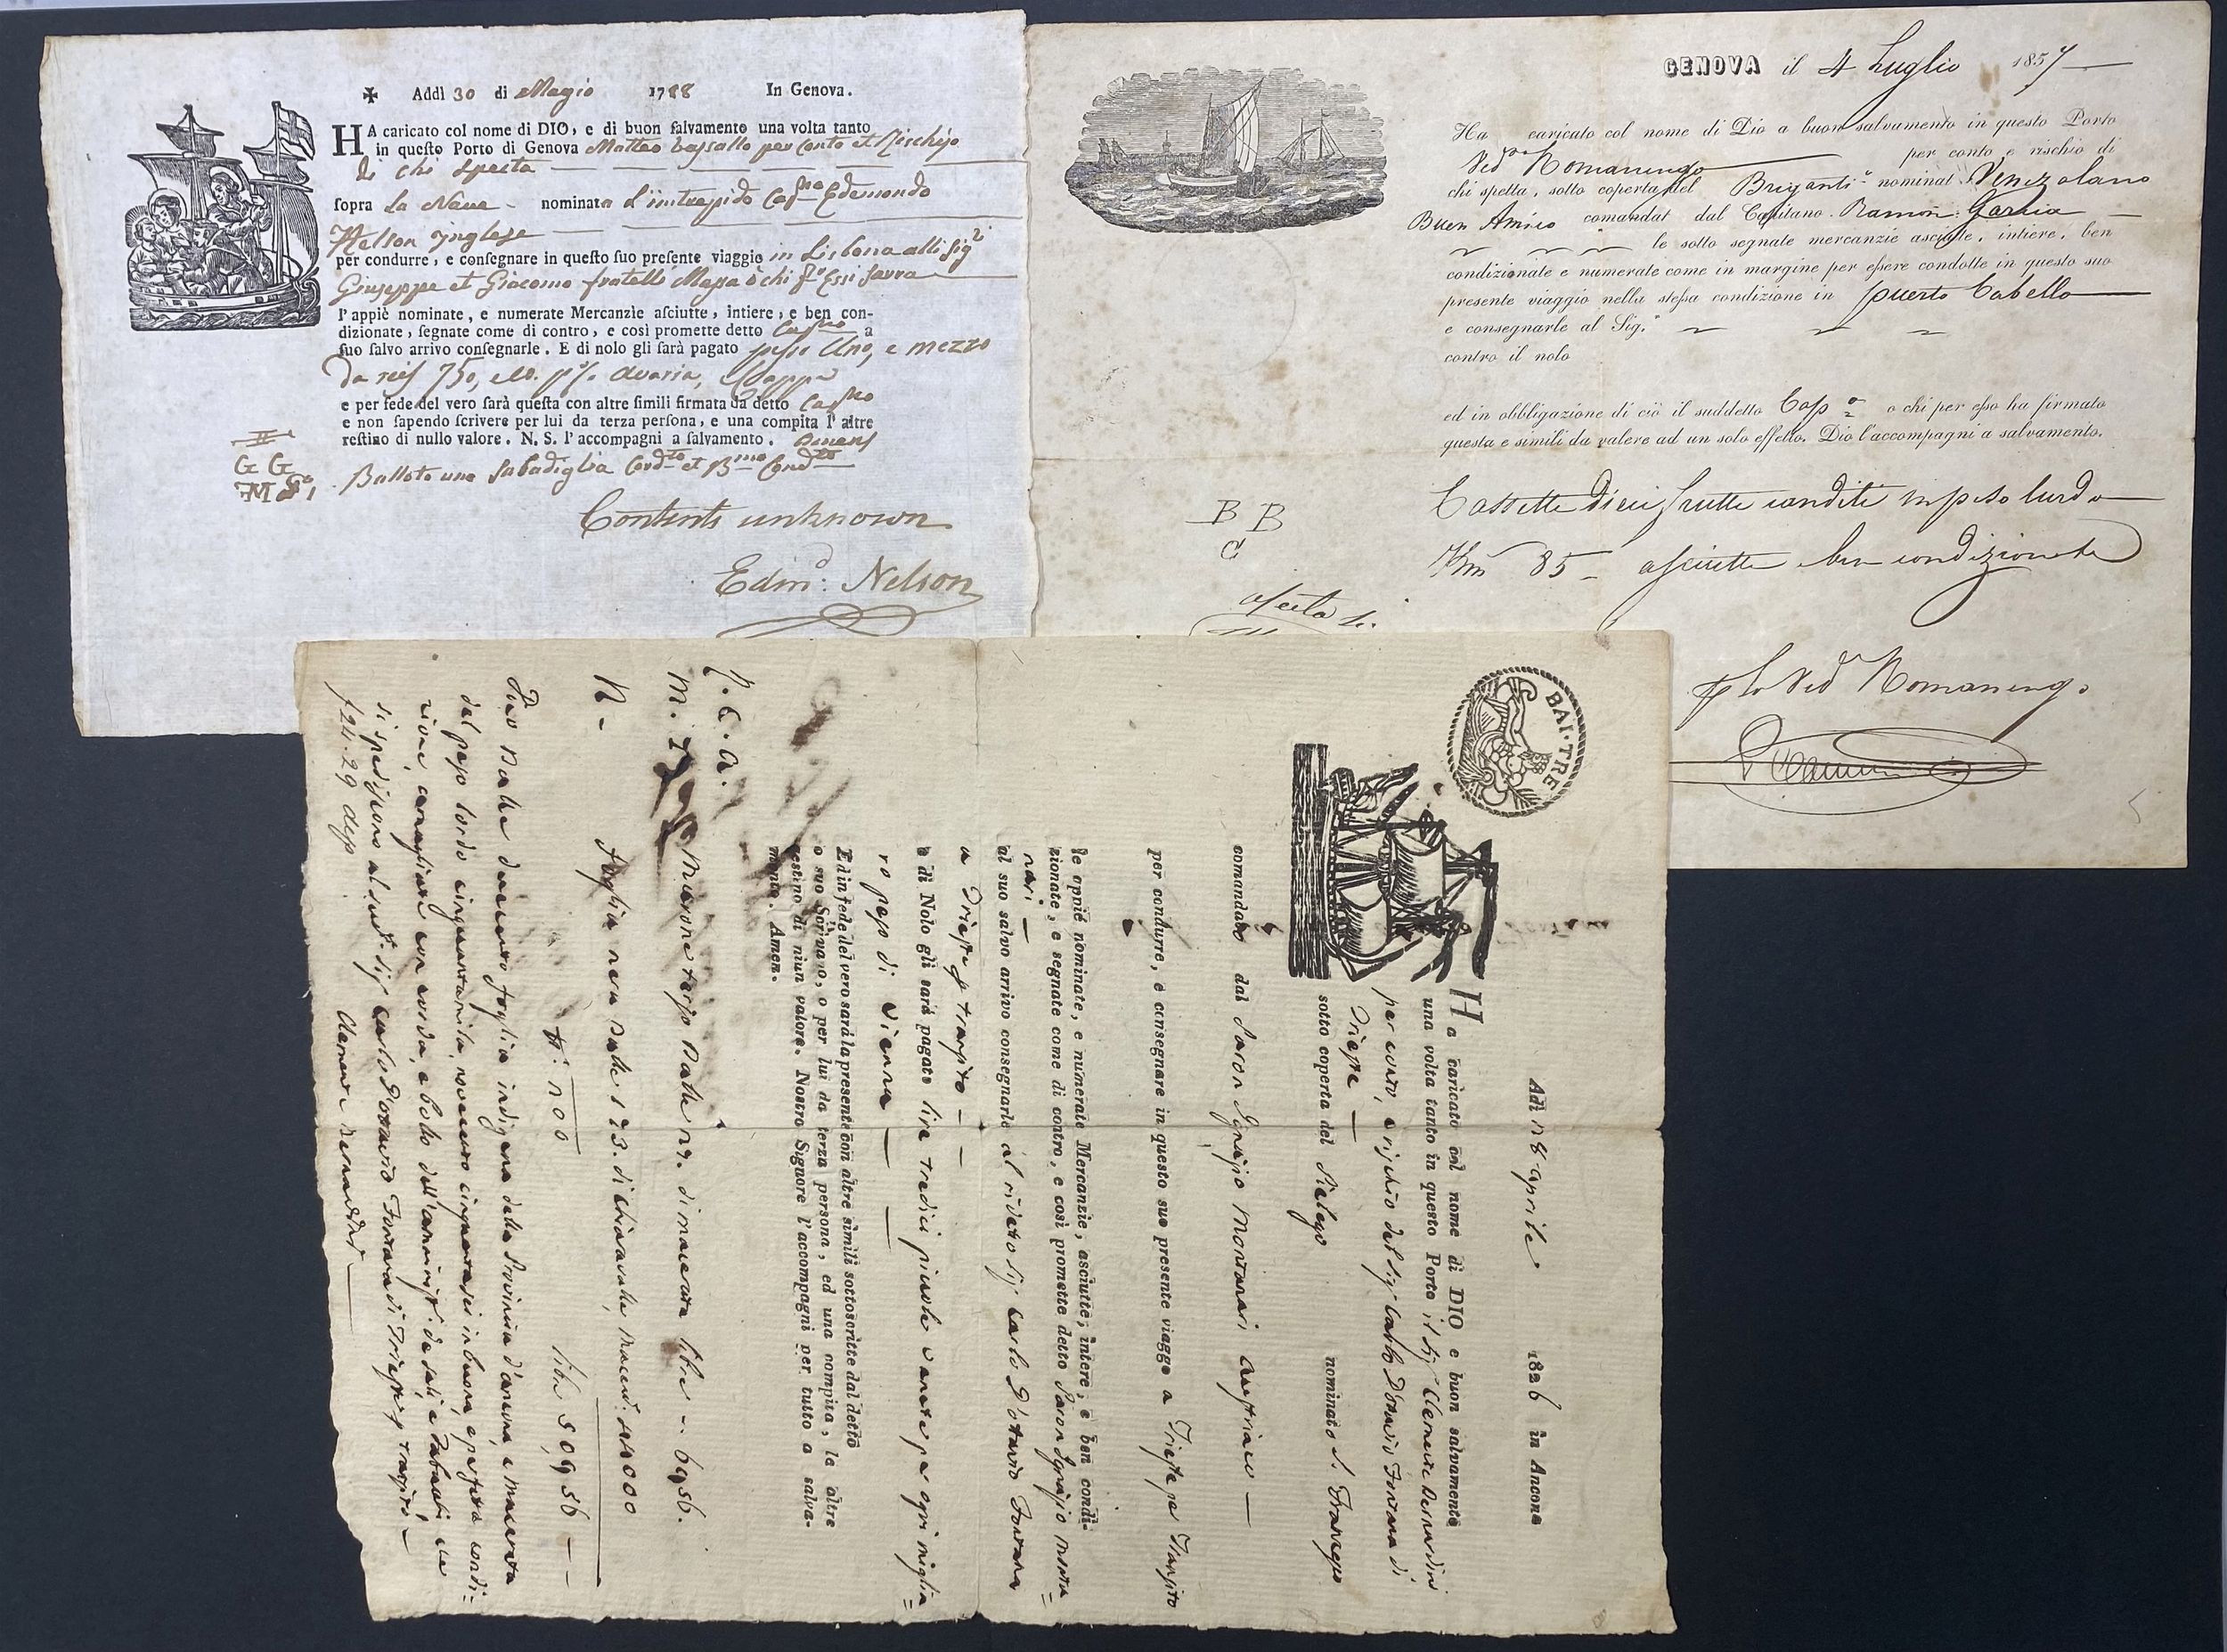 ✠ Addì 30 di Magio 1788 In Genova.
HA caricato col nome di DIO, e di buon salvamento una volta tanto
in questo Porto di Genova Matteo Vassallo per conto et Rischijo
di chi specta
sopra la Nave nominata L'intrepido Capno Edemondo
Nelson Inglese
per condurre, e consegnare in questo suo presente viaggio in Lisbona alli Sigri
Giuseppe et Giacomo fratelli Massa ò chi Essi farra
l'appiè nominate, e numerate Mercanzie asciutte, intiere, e ben con-
dizionate, segnate come di contro, e così promette detto Capno a
suo salvo arrivo consegnarle. E di nolo gli sarà pagato pesso Uno, e mezzo
da reis 750, e 10. p% Avaria, e Cappa
e per fede del vero sarà questa con altre simili firmata da detto Capno
e non sapendo scrivere per lui da terza persona, e una compita l'altre
restino di nullo valore. N. S. l'accompagni a salvamento. Amens
G G
Balloto uno Sabadiglia Cordto et Bno Condto
Contents unknown
Edmd: Nelson
GENOVA il 4 Luglio 1857
Ha caricato col nome di Dio a buon salvamento in questo Porto
Ved Romanengo per conto e rischio di
chi spetta, sotto coperta del Briganto nominat Venezolano
Buen Amico comandat dal Capitano Ramon Garcia
le sotto segnate mercanzie asciutte, intiere, ben
condizionate e numerate come in margine per essere condotte in questo suo
presente viaggio nella stessa condizione in puerto Cabello
e consegnarle al Sig.r
contro il nolo
ed in obbligazione di ciò il suddetto Capo o chi per esso ha firmato
questa e simili da valere ad un solo effetto. Dio l'accompagni a salvamento.
B B
C
Cassette dieci frutte canditi in peso lurdo
85 asciutte ben condizionate
Ved Romanengo
BAI·TRE
Adì 18 aprile 1826 in Ancona
Ha caricato col nome di DIO e buon salvamento
una volta tanto in questo Porto il Sigr Clemente Bernardini
per conto, e rischio del Sigr Carlo D'Ottavio Fontana di
Trieste
sotto coperta del Pielego nominato S. Francesco
comandato dal Paron Ignazio Montanari Austriaco
per condurre, e consegnare in questo suo presente viaggo a Trieste per Transito
le appiè nominate, e numerate Mercanzie, asciutte, intere, e ben condi-
zionate, e segnate come di contro, e così promette detto Paron Ignazio Monta=
nari
al suo salvo arrivo consegnarle al sudetto Sigr Carlo D'Ottavio Fontana
a Trieste p transito
e di Nolo gli sarà pagato lire tredici picole venete per ogni miglia=
ro peso di Vienna
Ed in fede del vero sarà la presente con altre simili sottoscritte dal detto
o suo Scrivano, o per lui da terza persona, ed una compita, le altre
restino di niun valore. Nostro Signore l'accompagni per tutto a salva-
mento. Amen.
n. 200 libre 50956
Dico Balle duecento foglia indigena della Provincia d'Ancona, e Macerata
del peso lordo cinquantamila novecento cinquantasei in buona, e perfetta condi=
zione, consegliate con corda, e bollo dell'Amminist. de Sali, e Tabacchi che
si spediscono al sud. Sigr Carlo D'Ottavio Fontana di Trieste p transito
Clemente Bernardini